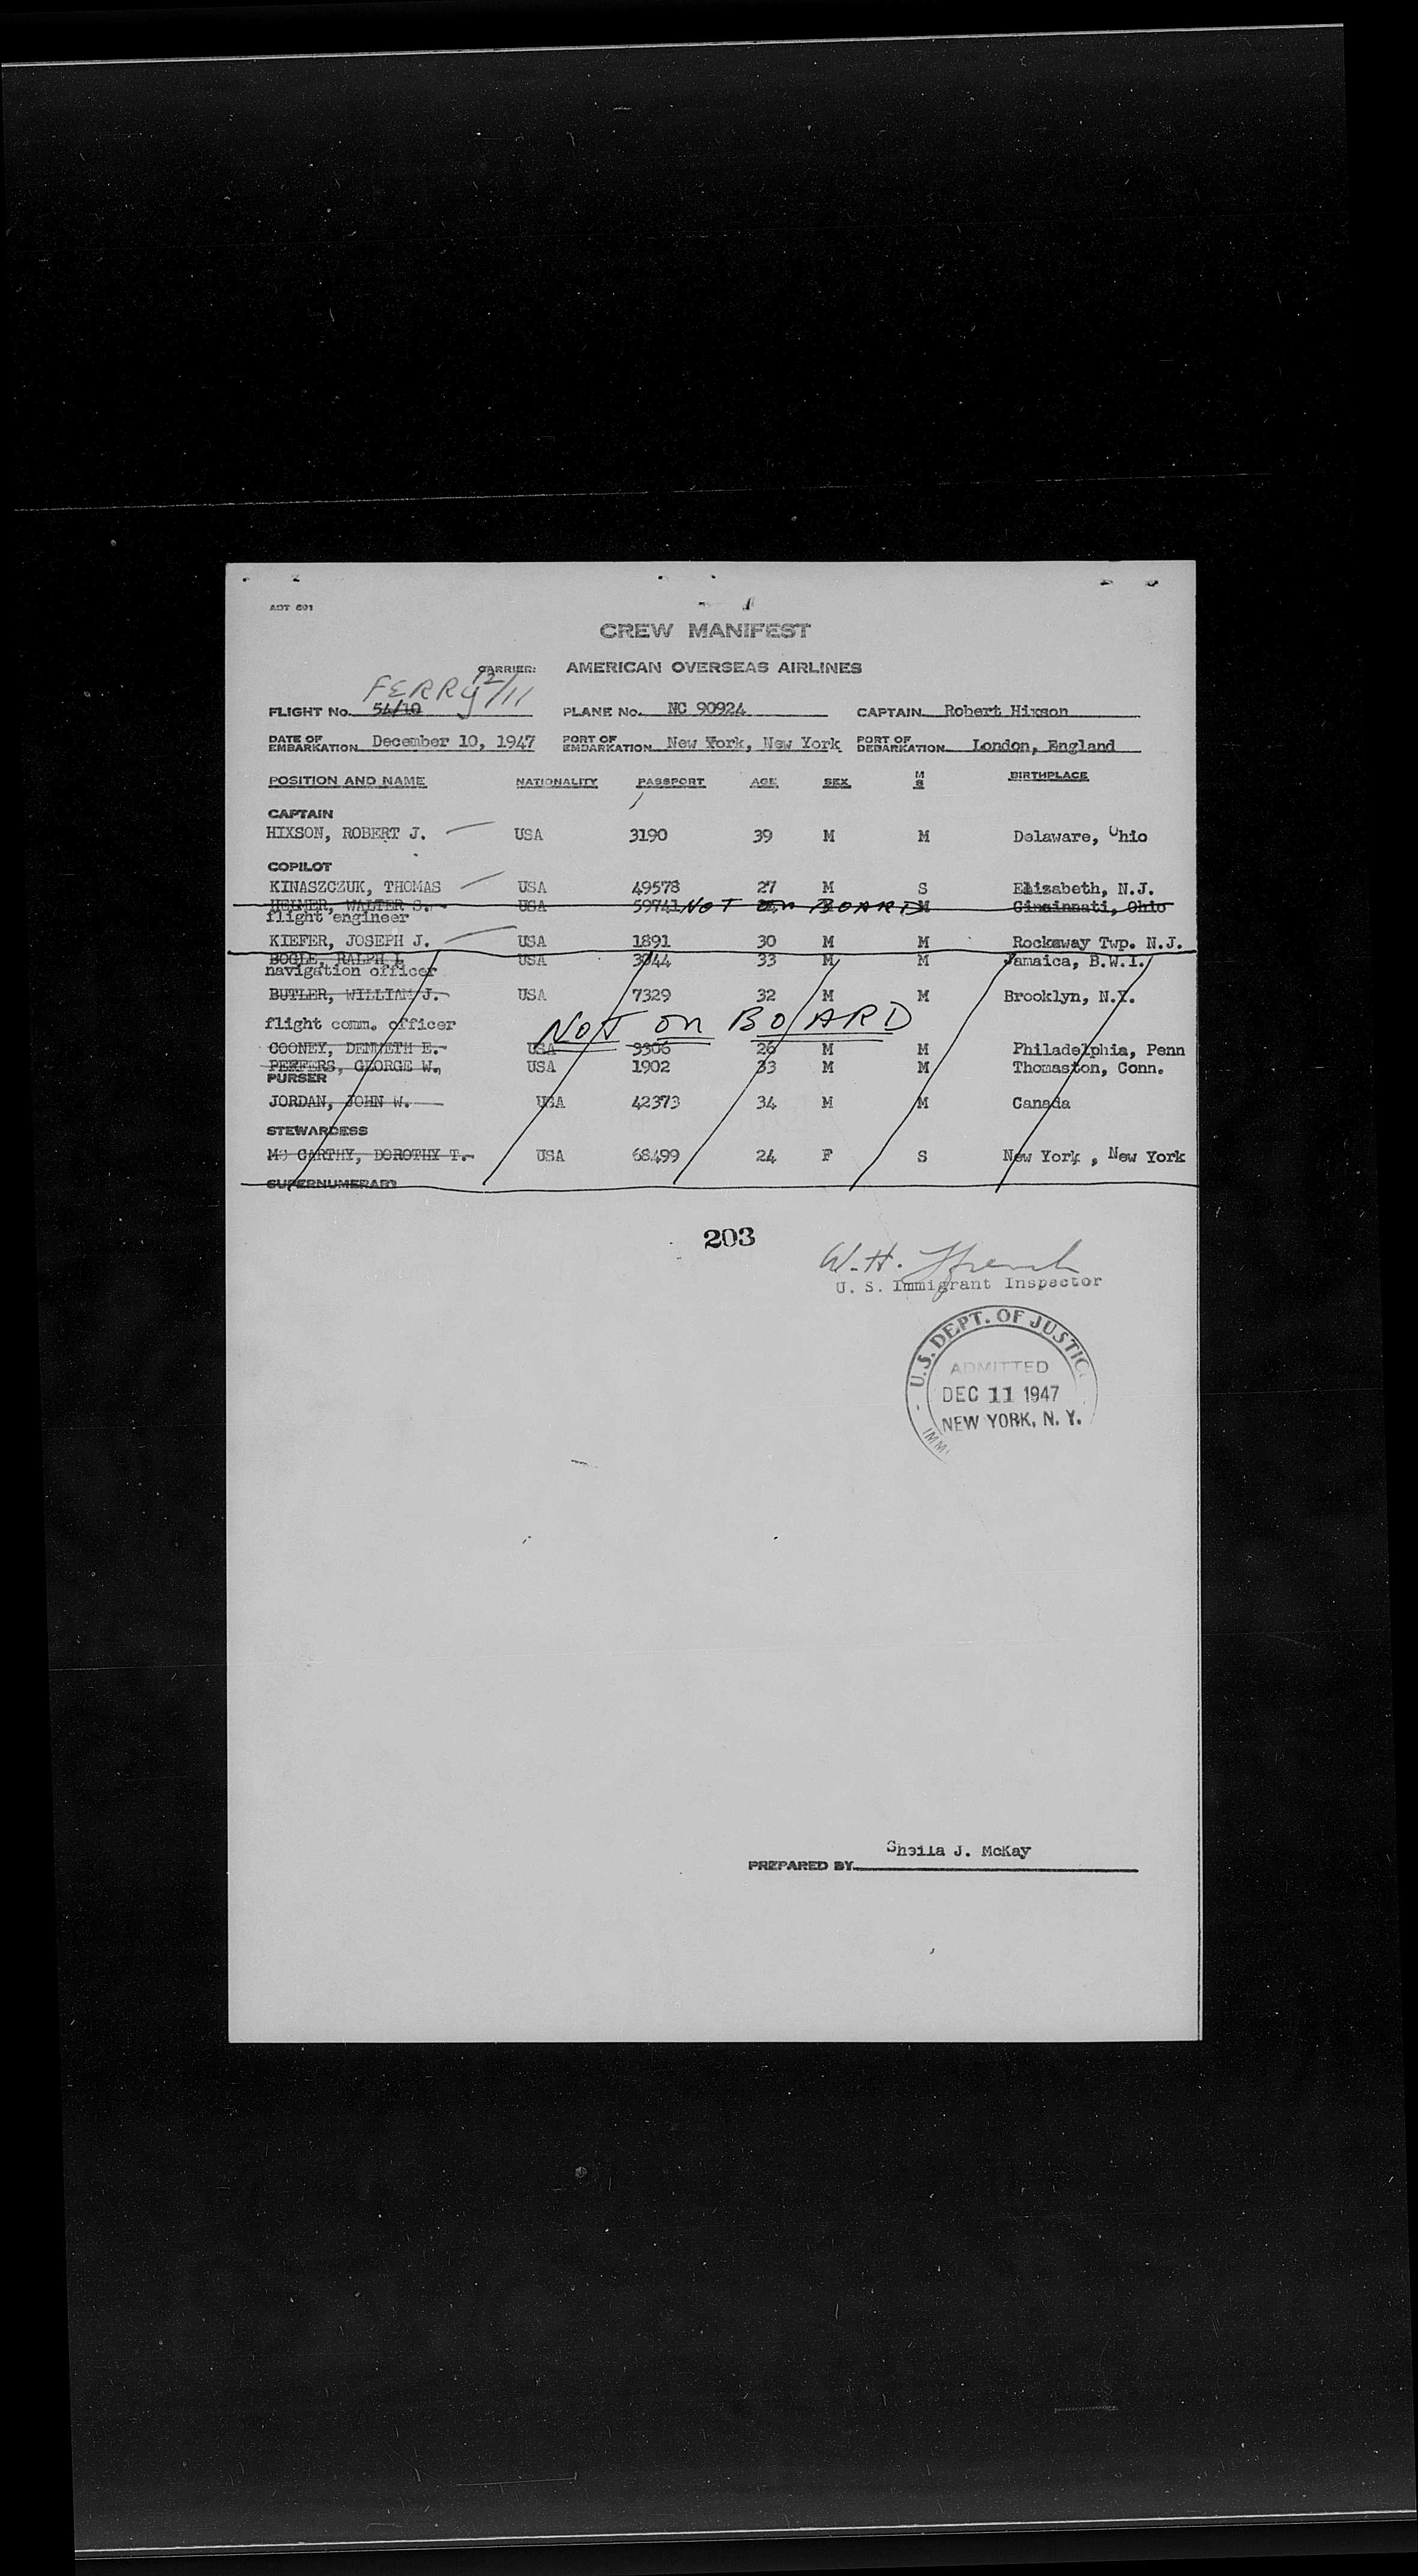 AOT 601
CREW MANIFEST
CARRIER: AMERICAN OVERSEAS AIRLINES
FERRY 12/11
FLIGHT No. 54/10 PLANE No. NC 90924 CAPTAIN Robert Hixson
DATE OF EMBARKATION December 10, 1947 PORT OF EMBARKATION New York, New York PORT OF DEBARKATION London, England
POSITION AND NAME NATIONALITY PASSPORT AGE SEX M S BIRTHPLACE
CAPTAIN
HIXSON, ROBERT J. USA 3190 39 M M Delaware, Ohio
COPILOT
KINASZCZUK, THOMAS USA 49578 27 M S Elizabeth, N.J.
HELMER, WALTER S. USA 59741 NOT on BOARD M Cincinnati, Ohio
flight engineer
KIEFER, JOSEPH J. USA 1891 30 M M Rockaway Twp. N.J.
BOGLE, RALPH L USA 3044 33 M M Jamaica, B.W.I.
navigation officer
BUTLER, WILLIAM J. USA 7329 32 M M Brooklyn, N.Y.
flight comm. officer
NOT on BOARD
COONEY, DENNETH E. USA 3306 26 M M Philadelphia, Penn
PEFFERS, GEORGE W. USA 1902 33 M M Thomaston, Conn.
PURSER
JORDAN, JOHN W. USA 42373 34 M M Canada
STEWARDESS
MC CARTHY, DOROTHY T. USA 68499 24 F S New York , New York
SUPERNUMERARY
203
W. H. French
U. S. Immigrant Inspector
U.S. DEPT. OF JUSTIC
ADMITTED
DEC 11 1947
NEW YORK, N. Y.
IMM
Sheila J. McKay
PREPARED BY